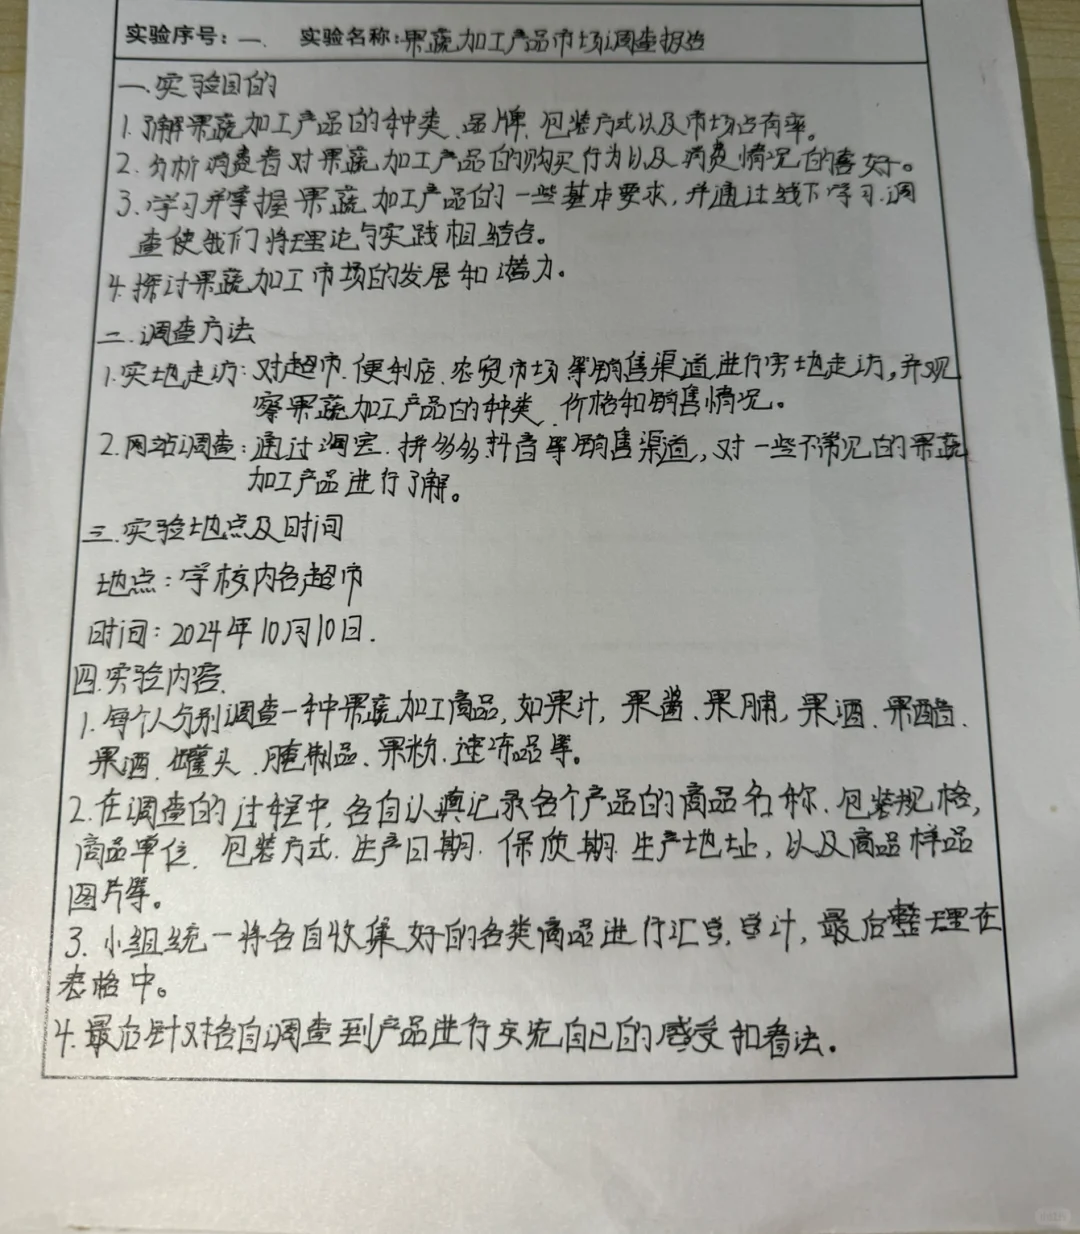 实验序号：一.  实验名称：果蔬加工产品市场调查报告
一.实验目的
1.了解果蔬加工产品的种类、品牌、包装方式以及市场占有率。
2.分析消费者对果蔬加工产品的购买行为以及消费情况的喜好。
3.学习并掌握果蔬加工产品的一些基本要求，并通过线下学习.调
查使我们将理论与实践相结合。
4.探讨果蔬加工市场的发展和潜力。
二.调查方法
1.实地走访：对超市.便利店.农贸市场等销售渠道进行实地走访，并观
察果蔬加工产品的种类、价格和销售情况。
2.网站调查：通过淘宝.拼多多.抖音等销售渠道，对一些不常见的果蔬
加工产品进行了解。
三.实验地点及时间
地点：学校内各超市
时间：2024年10月10日.
四.实验内容.
1.每个人分别调查一种果蔬加工商品，如果汁，果酱、果脯，果酒、果醋、
果酒、罐头、腌制品、果粉、速冻品等。
2.在调查的过程中，各自认真记录各个产品的商品名称、包装规格，
商品单位、包装方式.生产日期.保质期.生产地址，以及商品样品
图片等。
3.小组统一将各自收集好的各类商品进行汇总，总计，最后整理在
表格中。
4.最后针对各自调查到产品进行交流自己的感受和看法。